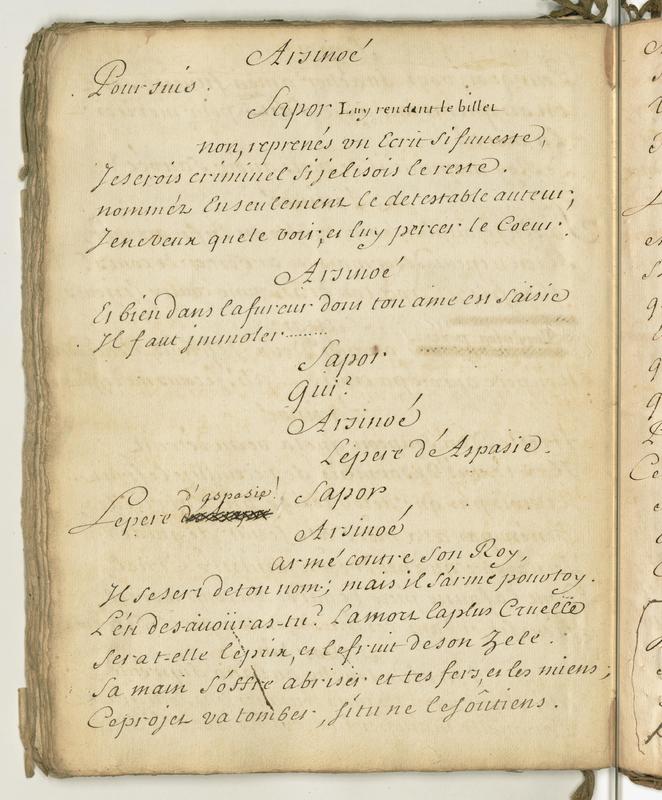 Arsinoé
Poursuis.
Sapor Luy rendant le billet
non, reprenés un Ecrit si funeste,
Je serois criminel si je lisois le reste.
nomméz En seulement le detestable auteur;
Je ne veux que le voir, et luy percer le Coeur.
Arsinoé
Et bien dans la fureur dont ton ame est saisie
Il faut jmmoler........
Sapor
Qui?
Arsinoé
Le pere d'Aspasie.
Sapor
Le pere d'aspasie!
Arsinoé
armé contre son Roy,
Il se sert de ton nom; mais il s'arme pour toy.
L'en desavoüras-tu? La mort la plus Cruelle
Sera t-elle le prix, et le fruit de son Zele.
Sa main s'offre a briser et tes fers, et les miens;
Ce projet va tomber, si tu ne le soûtiens.